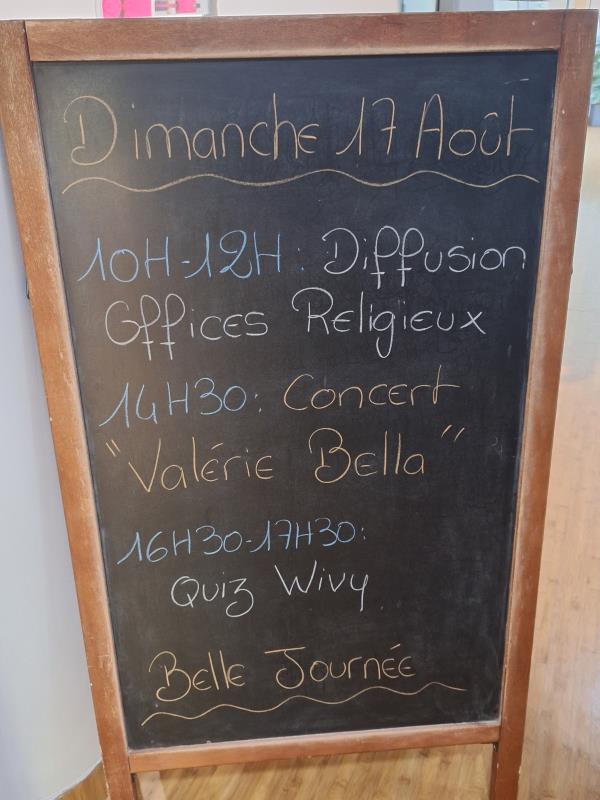 Dimanche 17 Août
10H-12H: Diffusion
Offices Religieux
14H30: Concert
"Valérie Bella"
16H30-17H30:
Quiz Wivy
Belle Journée